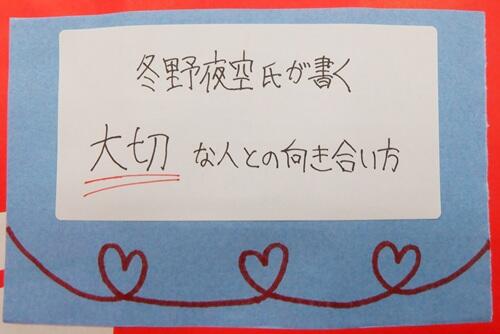 冬野夜空氏が書く
大切な人との向き合い方